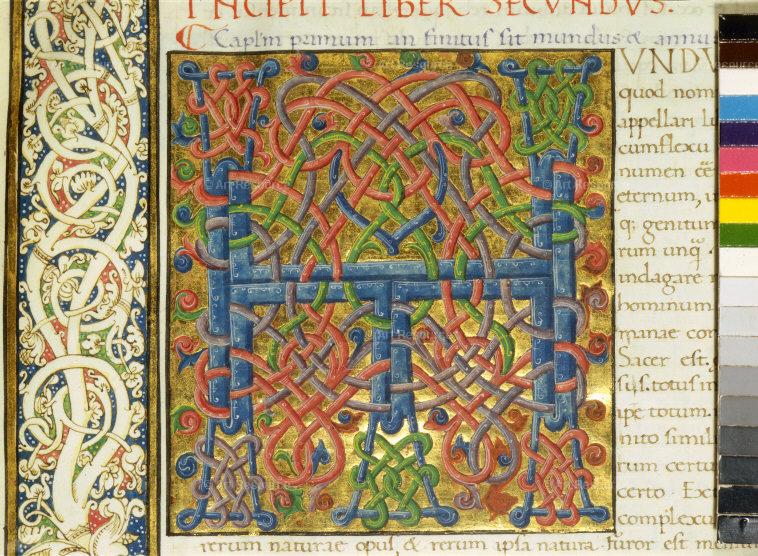 INCIPIT LIBER SECVNDVS.
Cap̄lm primum an finitus sit mundus & an unus
VNDV
quod nom
appellari li
cumflexu
numen eē
eternum, i
q; genitum
rum unq̄
indagare
hominum
manae con
Sacer est.
sus. totus in
ip̄e totum.
nito simil
rum certu
certo. Ex
complexus
rerum naturae opus, & rerum ipsa natura. furor est men